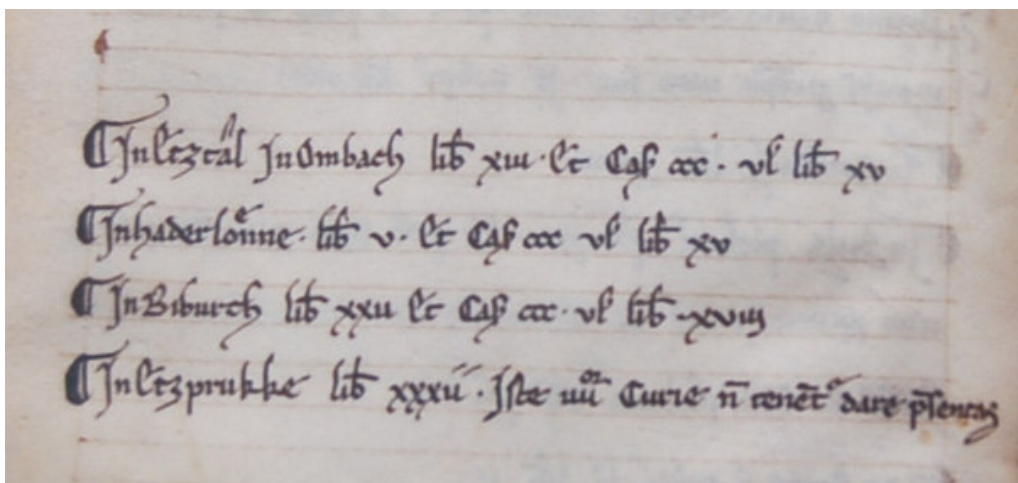 ¶ In Etztal In Ombach lib̄ xiii · Et Cas̄ ccc · vl̄ lib̄ xv
¶ In haderloͤnne · lib̄ v · Et Cas̄ ccc vl̄ lib̄ xv
¶ In Biburch lib̄ xxii Et Cas̄ ccc · vl̄ lib̄ · xviii
¶ In Etzprukke lib̄ xxxii · Iste Curie n̄ tenēt dare